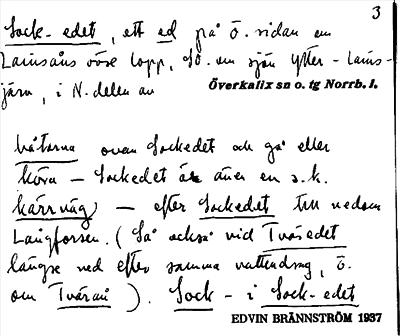 3
Sock-edet, ett ed på ö. sidan om
Lainsåns övre lopp, SÖ. om sjön Ytter-Lains-
järv, i N-delen av
Överkalix sn o. tg Norrb. l.
båtarna ovan Sockedet och gå eller
köra – Sockedet är även en s.k.
kärrväg – efter Sockedet till nedom
Långforsen. (Så också vid Tvärsedet
längre ned efter samma vattendrag, ö.
om Tvärån). Sock- i Sock-edet
EDVIN BRÄNNSTRÖM 1937